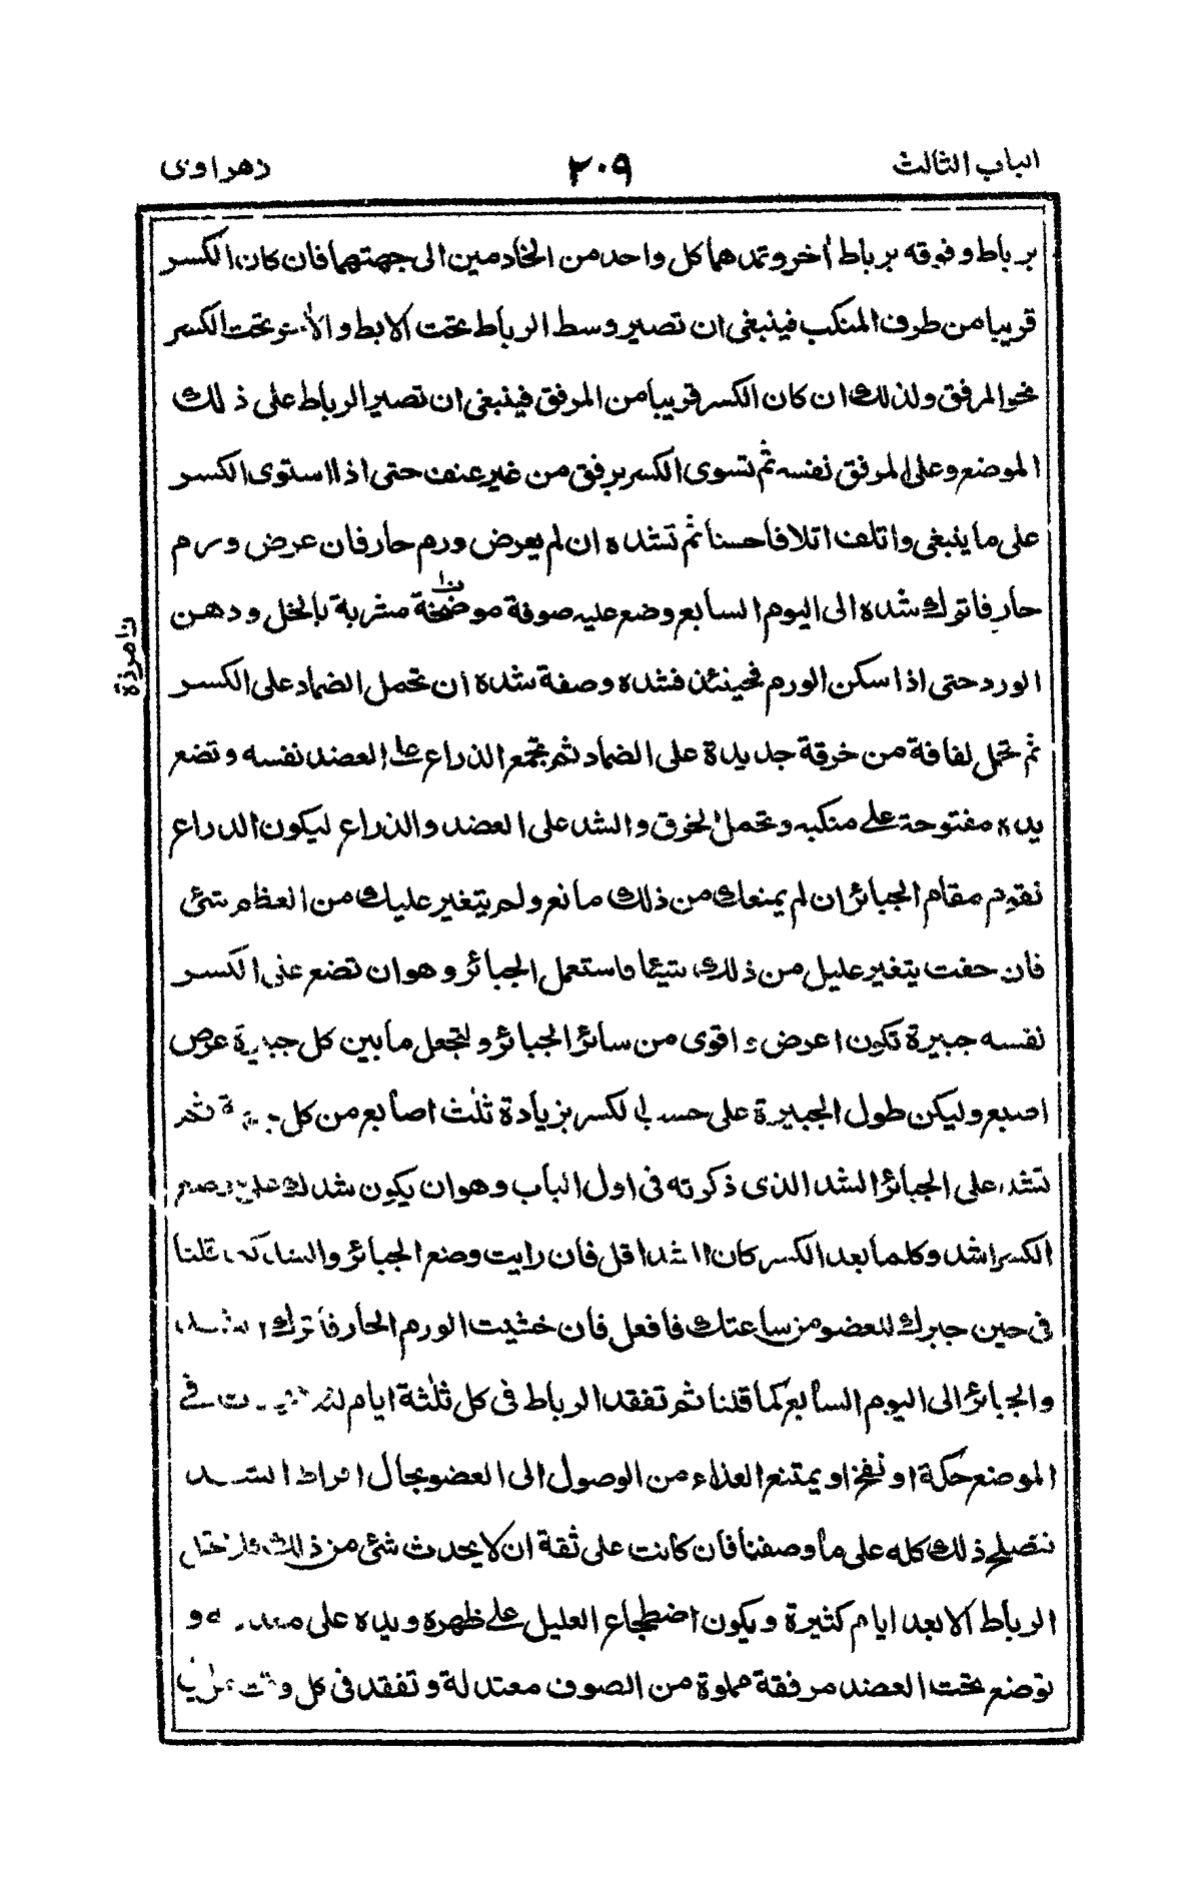 الباب الثالث ٢٠٩ زهراوى
برباط وفوقه برباط أخر وتمدهما كل واحد من الخادمين الى جهتهما فان كان الكسر
قريبا من طرف المنكب فينبغى ان تصير وسط الرباط تحت الابط والأخر تحت الكسر
نحو المرفق ولذلك ان كان الكسر قريبا من المرفق فينبغى ان تصير الرباط على ذلك
الموضع وعلى المرفق نفسه ثم تسوى الكسر برفق من غير عنف حتى اذا استوى الكسر
على ما ينبغى واتلف اتلافا حسنا ثم تشده ان لم يعرض ورم حار فان عرض ورم
حار فاترك شده الى اليوم السابع وضع عليه صوفة موضخة مشربة بالخل ودهن
الورد حتى اذا سكن الورم فحينئذ فشده وصفة شده ان تحمل الضماد على الكسر
ثم تحمل لفافة من خرقة جديدة على الضماد ثم تجمع الذراع على العضد نفسه وتضع
يده مفتوحة على منكبه وتحمل الخرق والشد على العضد والذراع ليكون الذراع
تقوم مقام الجبائر ان لم يمنعك من ذلك مانع ولم يتغير عليك من العظم شئ
فان خفت يتغير عليل من ذلك شيئا فاستعمل الجبائر وهو ان تضع على الكسر
نفسه جبيرة تكون اعرض و اقوى من سائر الجبائر ولتجعل ما بين كل جبيرة عرض
اصبع وليكن طول الجبيرة على حسب الكسر بزيادة ثلث اصابع من كل ثم
تشد على الجبائر الشد الذى ذكرته فى اول الباب وهو ان يكون شدك على
الكسر اشد وكلما بعد الكسر كان الشد اقل فان رايت وضع الجبائر والشد كما قلنا
فى حين جبرك للعضو من ساعتك فافعل فان خشيت الورم الحار فاترك الشد
والجبائر الى اليوم السابع كما قلنا ثم تفقد الرباط فى كل ثلثة ايام فى
الموضع حكة او نفخ او يمتنع الغذاء من الوصول الى العضو بحال افراط الشد
نتصلح ذلك كله على ما وصفنا فان كانت على ثقة ان لا يحدث شئ من ذلك فلا تحل
الرباط الا بعد ايام كثيرة ويكون اضطجاع العليل على ظهره ويده على و
توضع تحت العضد مرفقة مملوة من الصوف معتدلة وتفقد فى كل وقت